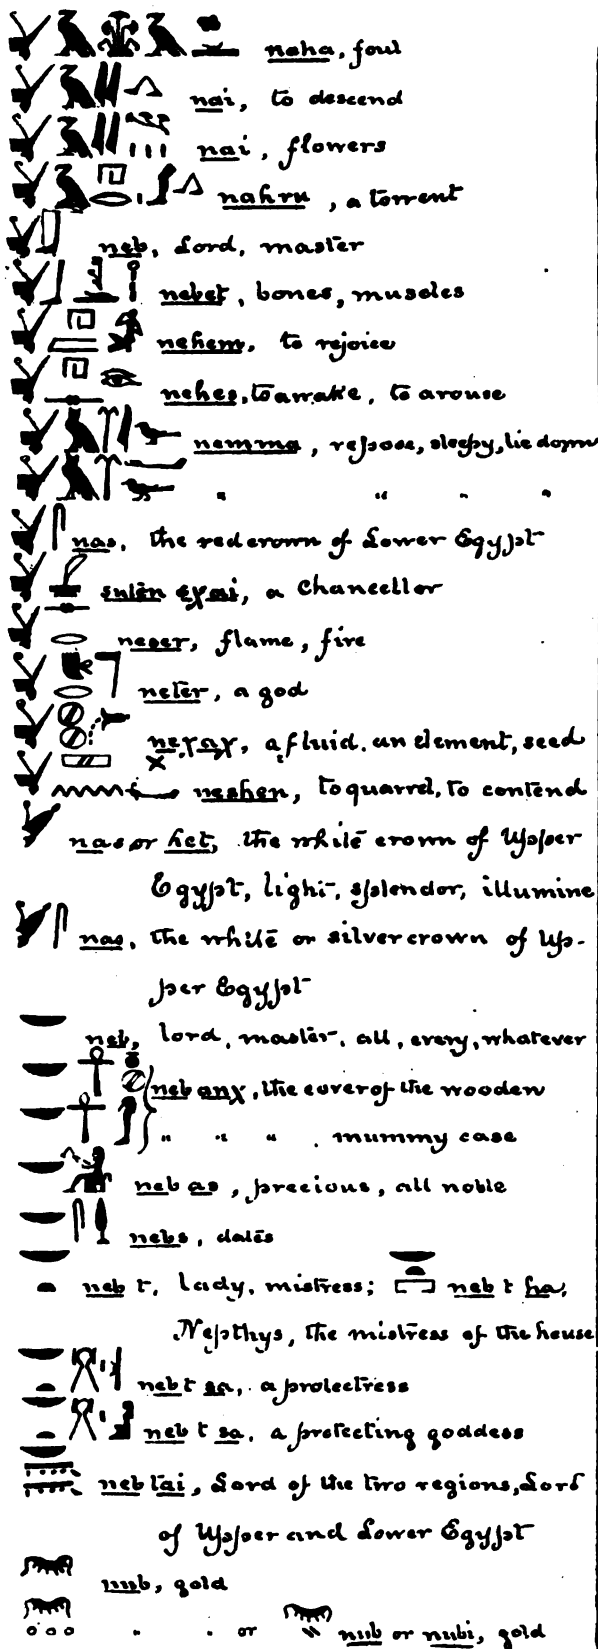 naha, foul
nai, to descend
nai, flowers
nahru, a torrent
neb, Lord, master
nebet, bones, muscles
nehem, to rejoice
nehes, to awake, to arouse
nemma, repose, sleepy, lie down
" " " "
nas, the red crown of Lower Egypt
suten exai, a Chancellor
neser, flame, fire
neter, a god
nexax, a fluid, an element, seed
neshen, to quarrel, to contend
nas or het, the white crown of Upper
Egypt, light, splendor, illumine
nas, the white or silver crown of Up-
per Egypt
neb, lord, master, all, every, whatever
neb anx, the cover of the wooden
" " " . mummy case
neb as, precious, all noble
nebs, dates
neb t, lady, mistress; neb t ha,
Nepthys, the mistress of the house
neb t sa, a protectress
neb t sa, a protecting goddess
neb tai, Lord of the two regions, Lord
of Upper and Lower Egypt
nub, gold
" " or nub or nubi, gold